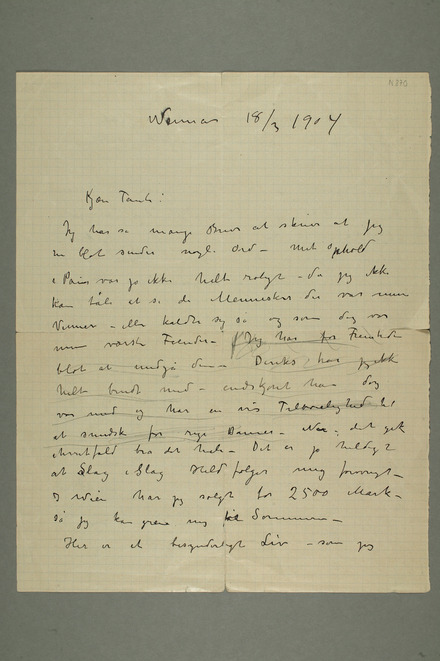 N 870
Weimar 18/3 1904
Kjære Tante!
Jeg har så mange Breve at skrive at jeg
blot sender nogle Ord – Mit Ophold
i Paris var jo ikke helt roligt – da jeg ikke
kan tåle at se de Mennesker der var mine
Venner – eller kaldte sig så og som dog var
mine værste Fiender – Jeg har for Fremtiden
blot at undgå dem – har jeg ikke
helt brudt med – endskjønt han dog
var med og har en vis Tilbøielighed til
at for rige Damer – Nu – det gik
ihvertfald bra det hele – Det er jo heldigt
at Slag i Slag Held følger mig forøvrigt –
I Wien har jeg solgt for 2500 Mark –
så jeg kan greie mig til Sommeren –
Her er et besynderligt Liv – som jeg